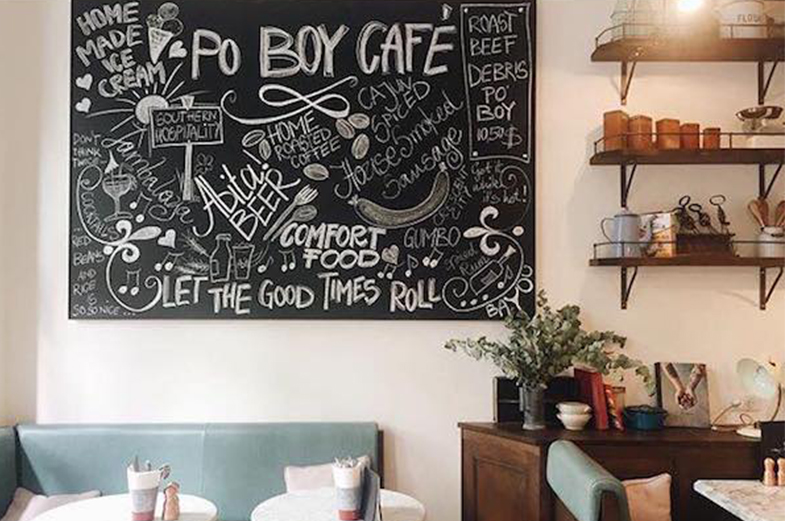 HOME
MADE
ICE
CREAM
PO BOY CAFÉ
ROAST
BEEF
DEBRIS
PO'
BOY
10.50$
SOUTHERN
HOSPITALITY
CAJUN
SPICED
House Smoked
Sausage
HOME
ROASTED
COFFEE
DON'T
THINK
TWICE
Jambalaya
Abita!
BEER
get it
while
it's hot!
COMFORT
FOOD
GUMBO
Spiced
Rum
RED
BEANS
AND
RICE
IS
SO SO NICE ...
LET THE GOOD TIMES ROLL
BAYOU
FLOUR